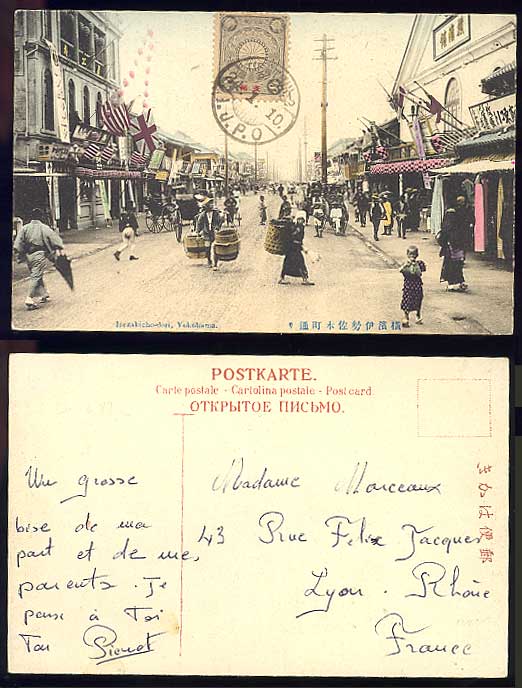 I.J.P.O
10
Isezakicho-dori, Yokohama.
横濱伊勢佐木町通り
POSTKARTE.
Carte postale - Cartolina postale - Post card.
ОТКРЫТОЕ ПИСЬМО.
郵便はかき
Un grosse
bise de ma
part et de mes
parents. Je
pense à Toi
Ton Pierrot
Madame Morceaux
43 Rue Felix Jacques
Lyon. Rhône
France